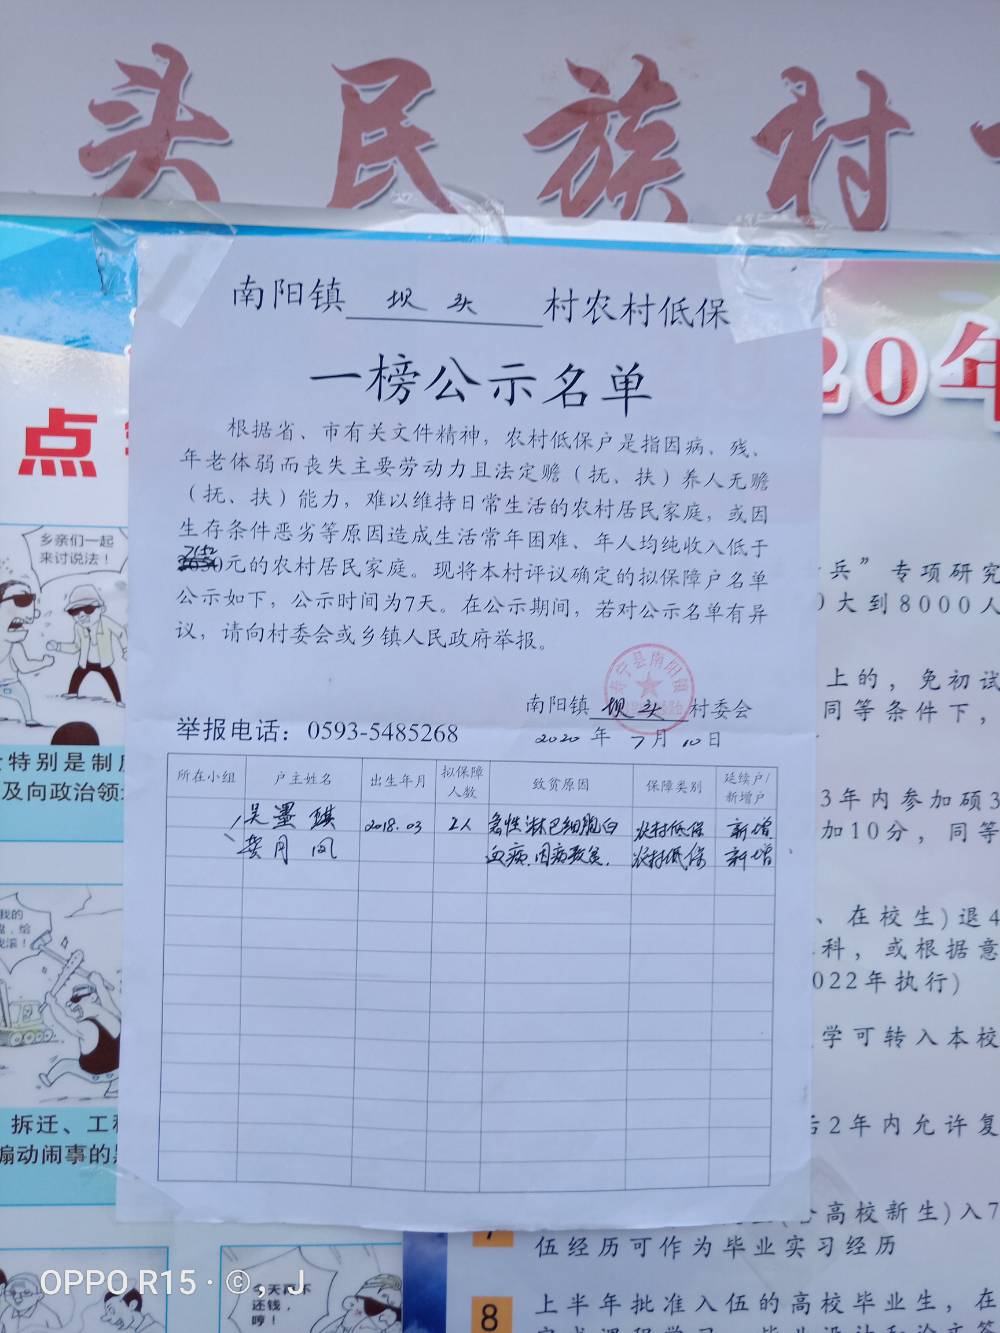 头民族村
南阳镇 坝头 村农村低保
一榜公示名单
根据省、市有关文件精神，农村低保户是指因病、残、
年老体弱而丧失主要劳动力且法定赡（抚、扶）养人无赡
（抚、扶）能力，难以维持日常生活的农村居民家庭，或因
生存条件恶劣等原因造成生活常年困难、年人均纯收入低于
7152元的农村居民家庭。现将本村评议确定的拟保障户名单
公示如下，公示时间为7天。在公示期间，若对公示名单有异
议，请向村委会或乡镇人民政府举报。
南阳镇 坝头 村委会
举报电话：0593-5485268
2020 年 7 月 10 日
所在小组 户主姓名 出生年月 拟保障人数 致贫原因 保障类别 延续户/新增户
吴墨琪 2018.03 2人 急性淋巴细胞白 农村低保 新增
月凤 血病.因病致贫. 农村低保 新增
20年
点
乡亲们一起
来讨说法！
特别是制
及向政治领
我的
，给
滚！
拆迁、工
煽动闹事的
今天
还钱，
哼！
兵”专项研究
0大到8000人
上的，免初试
同等条件下，
3年内参加硕3
加10分，同等
、在校生)退4
科，或根据意
022年执行)
学可转入本校
后2年内允许复
高校新生)入7
伍经历可作为毕业实习经历
8
上半年批准入伍的高校毕业生，在
OPPO R15 · ©, J